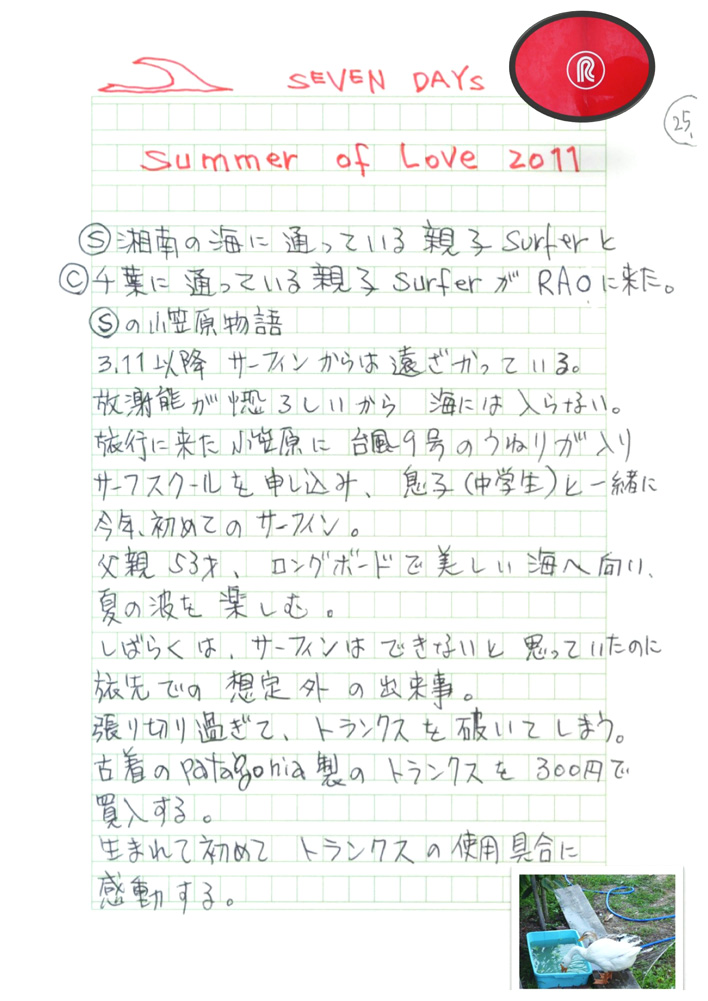 SEVEN DAYS
R
25.
Summer of Love 2011
Ⓢ湘南の海に通っている親子Surferと
Ⓒ千葉に通っている親子SurferがRAOに来た。
Ⓢの小笠原物語
3.11以降 サーフィンからは遠ざかっている。
放射能が恐ろしいから 海には入らない。
旅行に来た小笠原に 台風9号のうねりが入り
サーフスクールを申し込み、息子(中学生)と一緒に
今年、初めてのサーフィン。
父親53才、ロングボードで美しい海へ向い、
夏の波を楽しむ。
しばらくは、サーフィンはできないと思っていたのに
旅先での想定外の出来事。
張り切り過ぎて、トランクスを破いてしまう。
古着のpatagonia製のトランクスを300円で
買入する。
生まれて初めて トランクスの使用具合に
感動する。